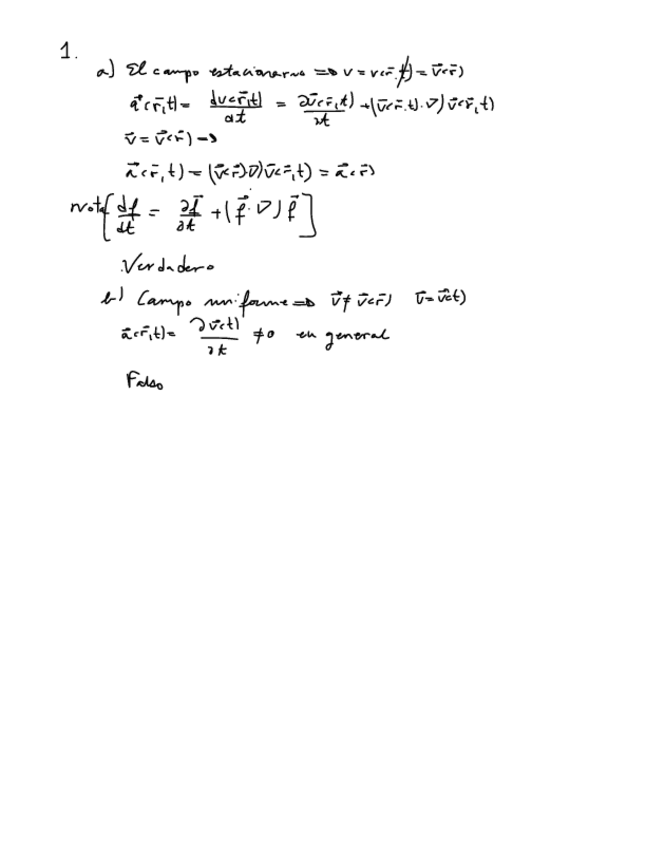 1.
a) El campo estacionario ⇒ v = v(r̄,t) = v⃗(r̄)
a⃗(r̄,t) = dv(r̄,t)/dt = ∂v̄(r̄,t)/∂t + (v̄(r̄,t)·∇) v̄(r̄,t)
v̄ = v⃗(r̄) →
a⃗(r̄,t) = (v⃗(r̄)∇)v̄(r̄,t) = a⃗(r̄)
Nota [df/dt = ∂f⃗/∂t + (f⃗·∇) f⃗]
Verdadero
b) Campo uniforme ⇒ v⃗ ≠ v̄(r̄) v̄ = v̄(t)
a⃗(r̄,t) = ∂v̄(t)/∂t ≠ 0 en general
Falso